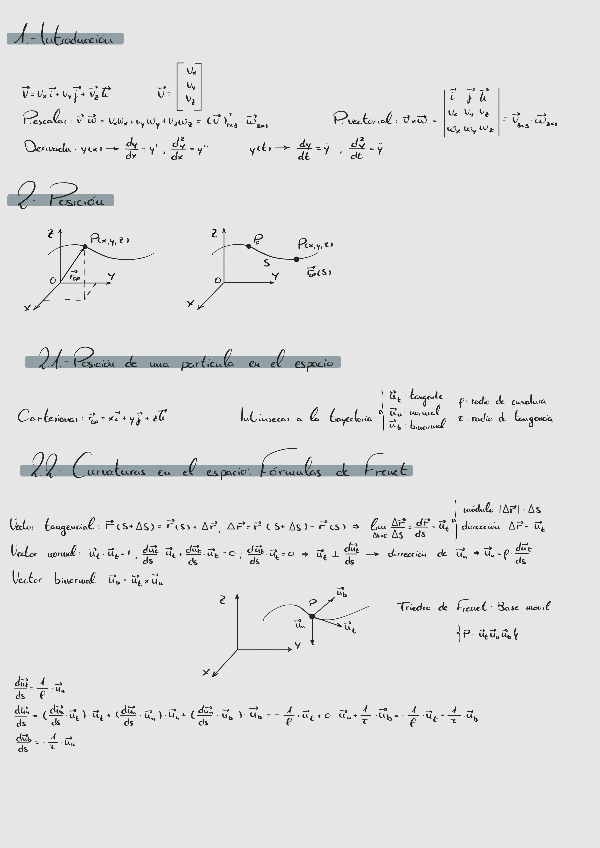 1.- Introducción
v⃗ = vₓ i⃗ + v_y j⃗ + v_z k⃗    v⃗ = [vₓ v_y v_z]
P.escalar: v⃗·w⃗ = vₓwₓ + v_yw_y + v_zw_z = (v⃗)ᵀ₁ₓ₃ · w⃗₃ₓ₁    P.vectorial: v⃗×w⃗ = | i⃗ j⃗ k⃗ / vₓ v_y v_z / wₓ w_y w_z | = v⃗₃ₓ₃ · w⃗₃ₓ₁
Derivada: y(x) → dy/dx = y', d²y/dx = y''    y(t) → dy/dt = ẏ, d²y/dt = ÿ
2.- Posición
Z P(x,y,z) r⃗op O Y X
Z P₀ P(x,y,z) S r⃗op(s) O Y X
2.1.- Posición de una partícula en el espacio
Cartesianas: r⃗op = x i⃗ + y j⃗ + z k⃗    Intrínsecas a la trayectoria { u⃗t tangente    ρ: radio de curvatura
u⃗n normal
u⃗b: binormal    τ: radio de tangencia
2.2.- Curvaturas en el espacio: Fórmulas de Frenet
Vector tangencial: r⃗(s+Δs) = r⃗(s) + Δr⃗, Δr⃗ = r⃗(s+Δs) − r⃗(s) ⇒ lim Δs→0 Δr⃗/Δs = dr⃗/ds = u⃗t { módulo |Δr⃗| = Δs
dirección Δr⃗ = u⃗t
Vector normal: u⃗t·u⃗t = 1, du⃗t/ds · u⃗t + du⃗t/ds · u⃗t = 0, du⃗t/ds · u⃗t = 0 ⇒ u⃗t ⊥ du⃗t/ds → dirección de u⃗n ⇒ u⃗n = ρ · du⃗t/ds
Vector binormal u⃗b = u⃗t × u⃗n
Z P u⃗b u⃗n u⃗t Y X
Triedro de Frenet: Base móvil
{P: u⃗t u⃗n u⃗b}
du⃗t/ds = 1/ρ · u⃗n
du⃗n/ds = (du⃗n/ds · u⃗t)·u⃗t + (du⃗n/ds · u⃗n)·u⃗n + (du⃗n/ds · u⃗b)·u⃗b = −1/ρ · u⃗t + 0·u⃗n + 1/τ · u⃗b = −1/ρ · u⃗t + 1/τ · u⃗b
du⃗b/ds = −1/τ · u⃗n